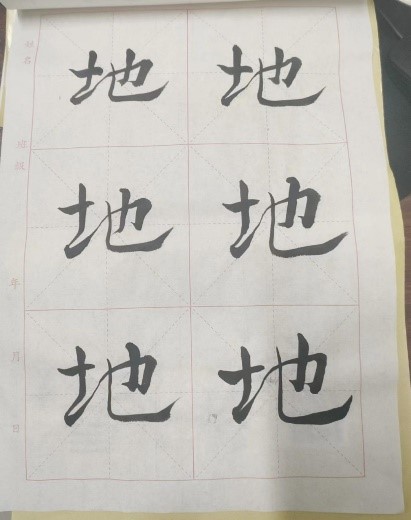 姓名
班级
年 月 日
地 地
地 地
地 地